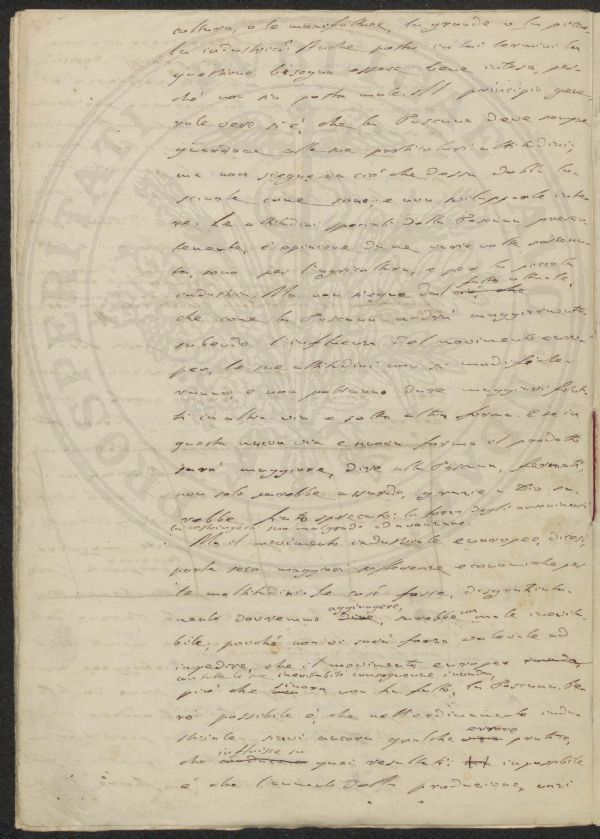 coltura, o le manifatture, la grande o la picco-
la industria? Anche posta in tai termini la
questione bisogna essere bene intesa, per-
ché non sia posta male. Il principio gene-
rale vero si è, che la Toscana deve sempre
guardare alle sue particolari attitudini;
ma non siegue da ciò che dessa debba la-
sciarle come sono, e non svilupparle inte-
re. Le attitudini speciali della Toscana presen-
temente, è opinione da me varie volte sostenu-
ta, sono per l'agricoltura, e per la piccola
industria. Ma non siegue dal fatto attuale,
che come la Toscana andrà maggiormente
subendo l'influenza del movimento euro-
peo, le sue attitudini non si modifiche-
ranno, e non potranno dare maggiori frut-
ti in altra via e sotto altra forma. E se in
questa nuova via e nuova forma il prodotto
sarà maggiore, dire alla Toscana, fermati,
non solo sarebbe assurdo, grazie a Dio sa-
rebbe fiato sprecato: la forza degli avvenimenti
la costringerà suo malgrado ad avanzare.
Ma il movimento industriale europeo, dicesi,
porta seco maggiori sofferenze economiche per
le moltitudini. Se così fosse, disgraziata-
mente dovremmo aggiungere, sarebbe un male inevita-
bile, perché non vi sarà forza valevole ad
impedire, che il movimento europeo
con tutte le sue inevitabili conseguenze invada,
più che sinora non ha fatto, la Toscana. Pe-
rò possibile è, che nell'ordinamento indu-
striale siavi ancora qualche errore pratico,
che influisce su quei resultati: impossibile
è che l'aumento della produzione, anzi